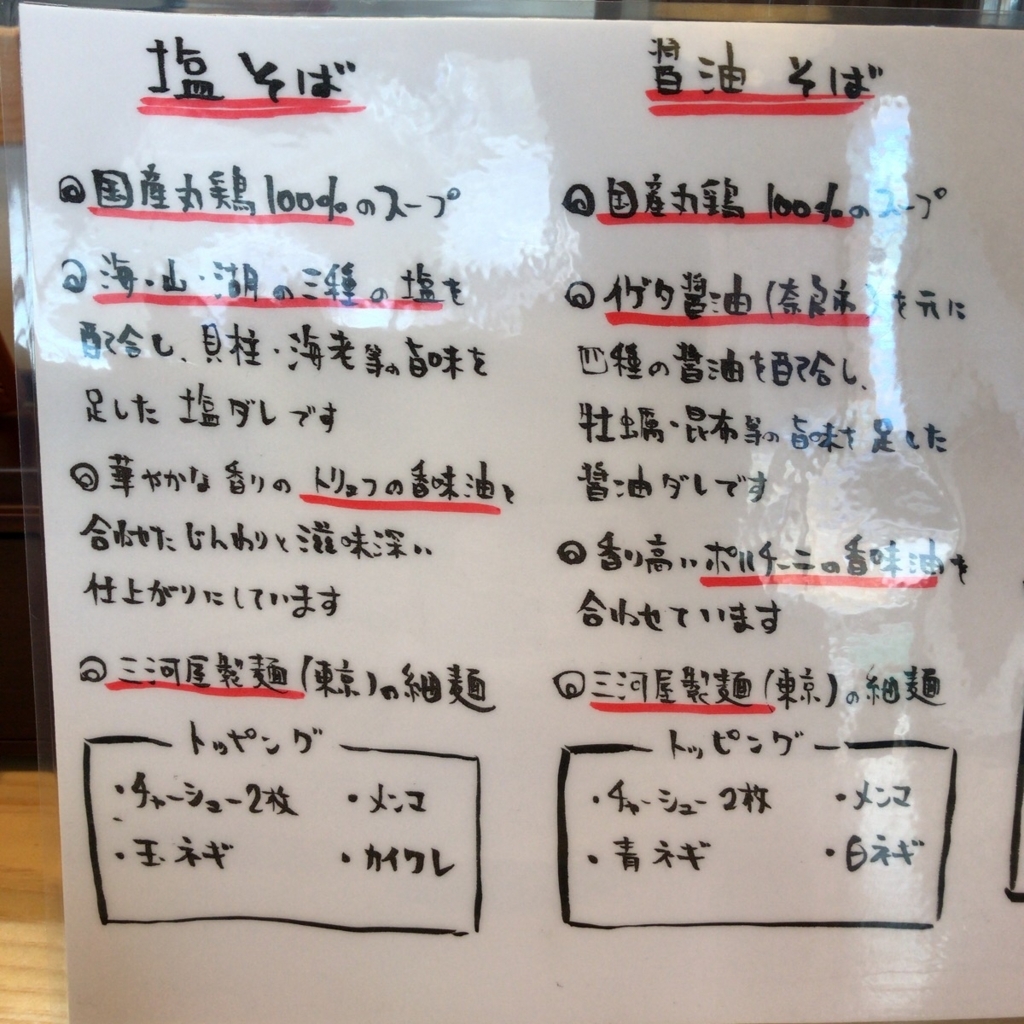 塩そば
◎国産丸鶏100%のスープ
◎海・山・湖の三種の塩を
配合し、貝柱・海老等の旨味を
足した 塩ダレです
◎華やかな香りのトリュフの香味油を
合わせたじんわりと滋味深い
仕上がりにしています
◎三河屋製麺(東京)の細麺
トッピング
・チャーシュー2枚 ・メンマ
・玉ネギ ・カイワレ
醤油そば
◎国産丸鶏100%のスープ
◎イゲタ醤油(奈良市)を元に
四種の醤油を配合し、
牡蠣・昆布等の旨味を足した
醤油ダレです
◎香り高いポルチーニの香味油を
合わせています
◎三河屋製麺(東京)の細麺
トッピング
・チャーシュー2枚 ・メンマ
・青ネギ ・白ネギ